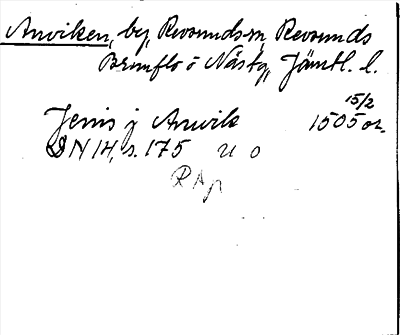 Anviken, by, Revsunds sn, Revsunds
Brunflo o Näs tg, Jämtl. l.
15/2
Jenis j Anwik 1505 or.
DN 14, s. 175 u o
R Ap